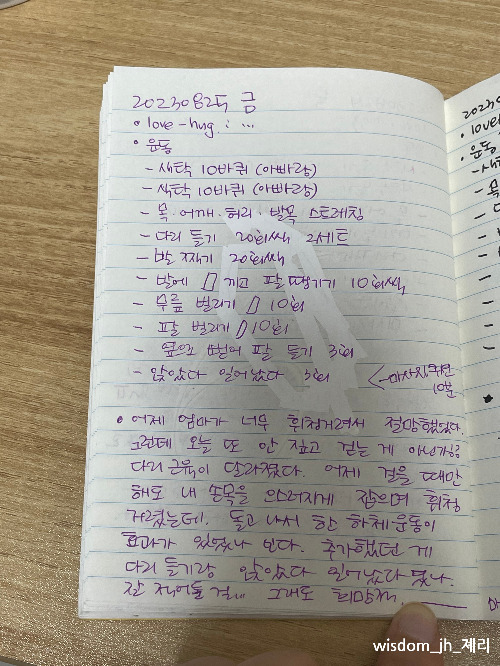 20230825 금
• love-hug : ...
• 운동
- 새탁 10바퀴 (아빠랑)
- 식탁 10바퀴 (아빠랑)
- 목·어깨·허리·발목 스트레칭
- 다리 들기 20회씩 2세트
- 발 20회씩
- 발에 끼고 팔 땡기기 10회씩
- 무릎 벌리기 10회
- 팔 벌리기 10회
- 옆으로 팔 들기 3회
- 앉았다 일어났다 3회
10분
• 어제 엄마가 너무 휘청거려서 절망했었다.
그런데 오늘 또 안 잡고 걷는 게 아닌가?
다리 근육이 달라졌다. 어제 걸을 때만
해도 내 손목을 으스러지게 잡으며 휘청
거렸는데. 돌고 나서 한 하체운동이
효과가 있었나 보다. 추가했던 게
다리 들기랑 앉았다 일어났다 였나.
잘 적어둘 걸... 그래도 희망차.
20230
• love
• 운동
wisdom_jh_제리